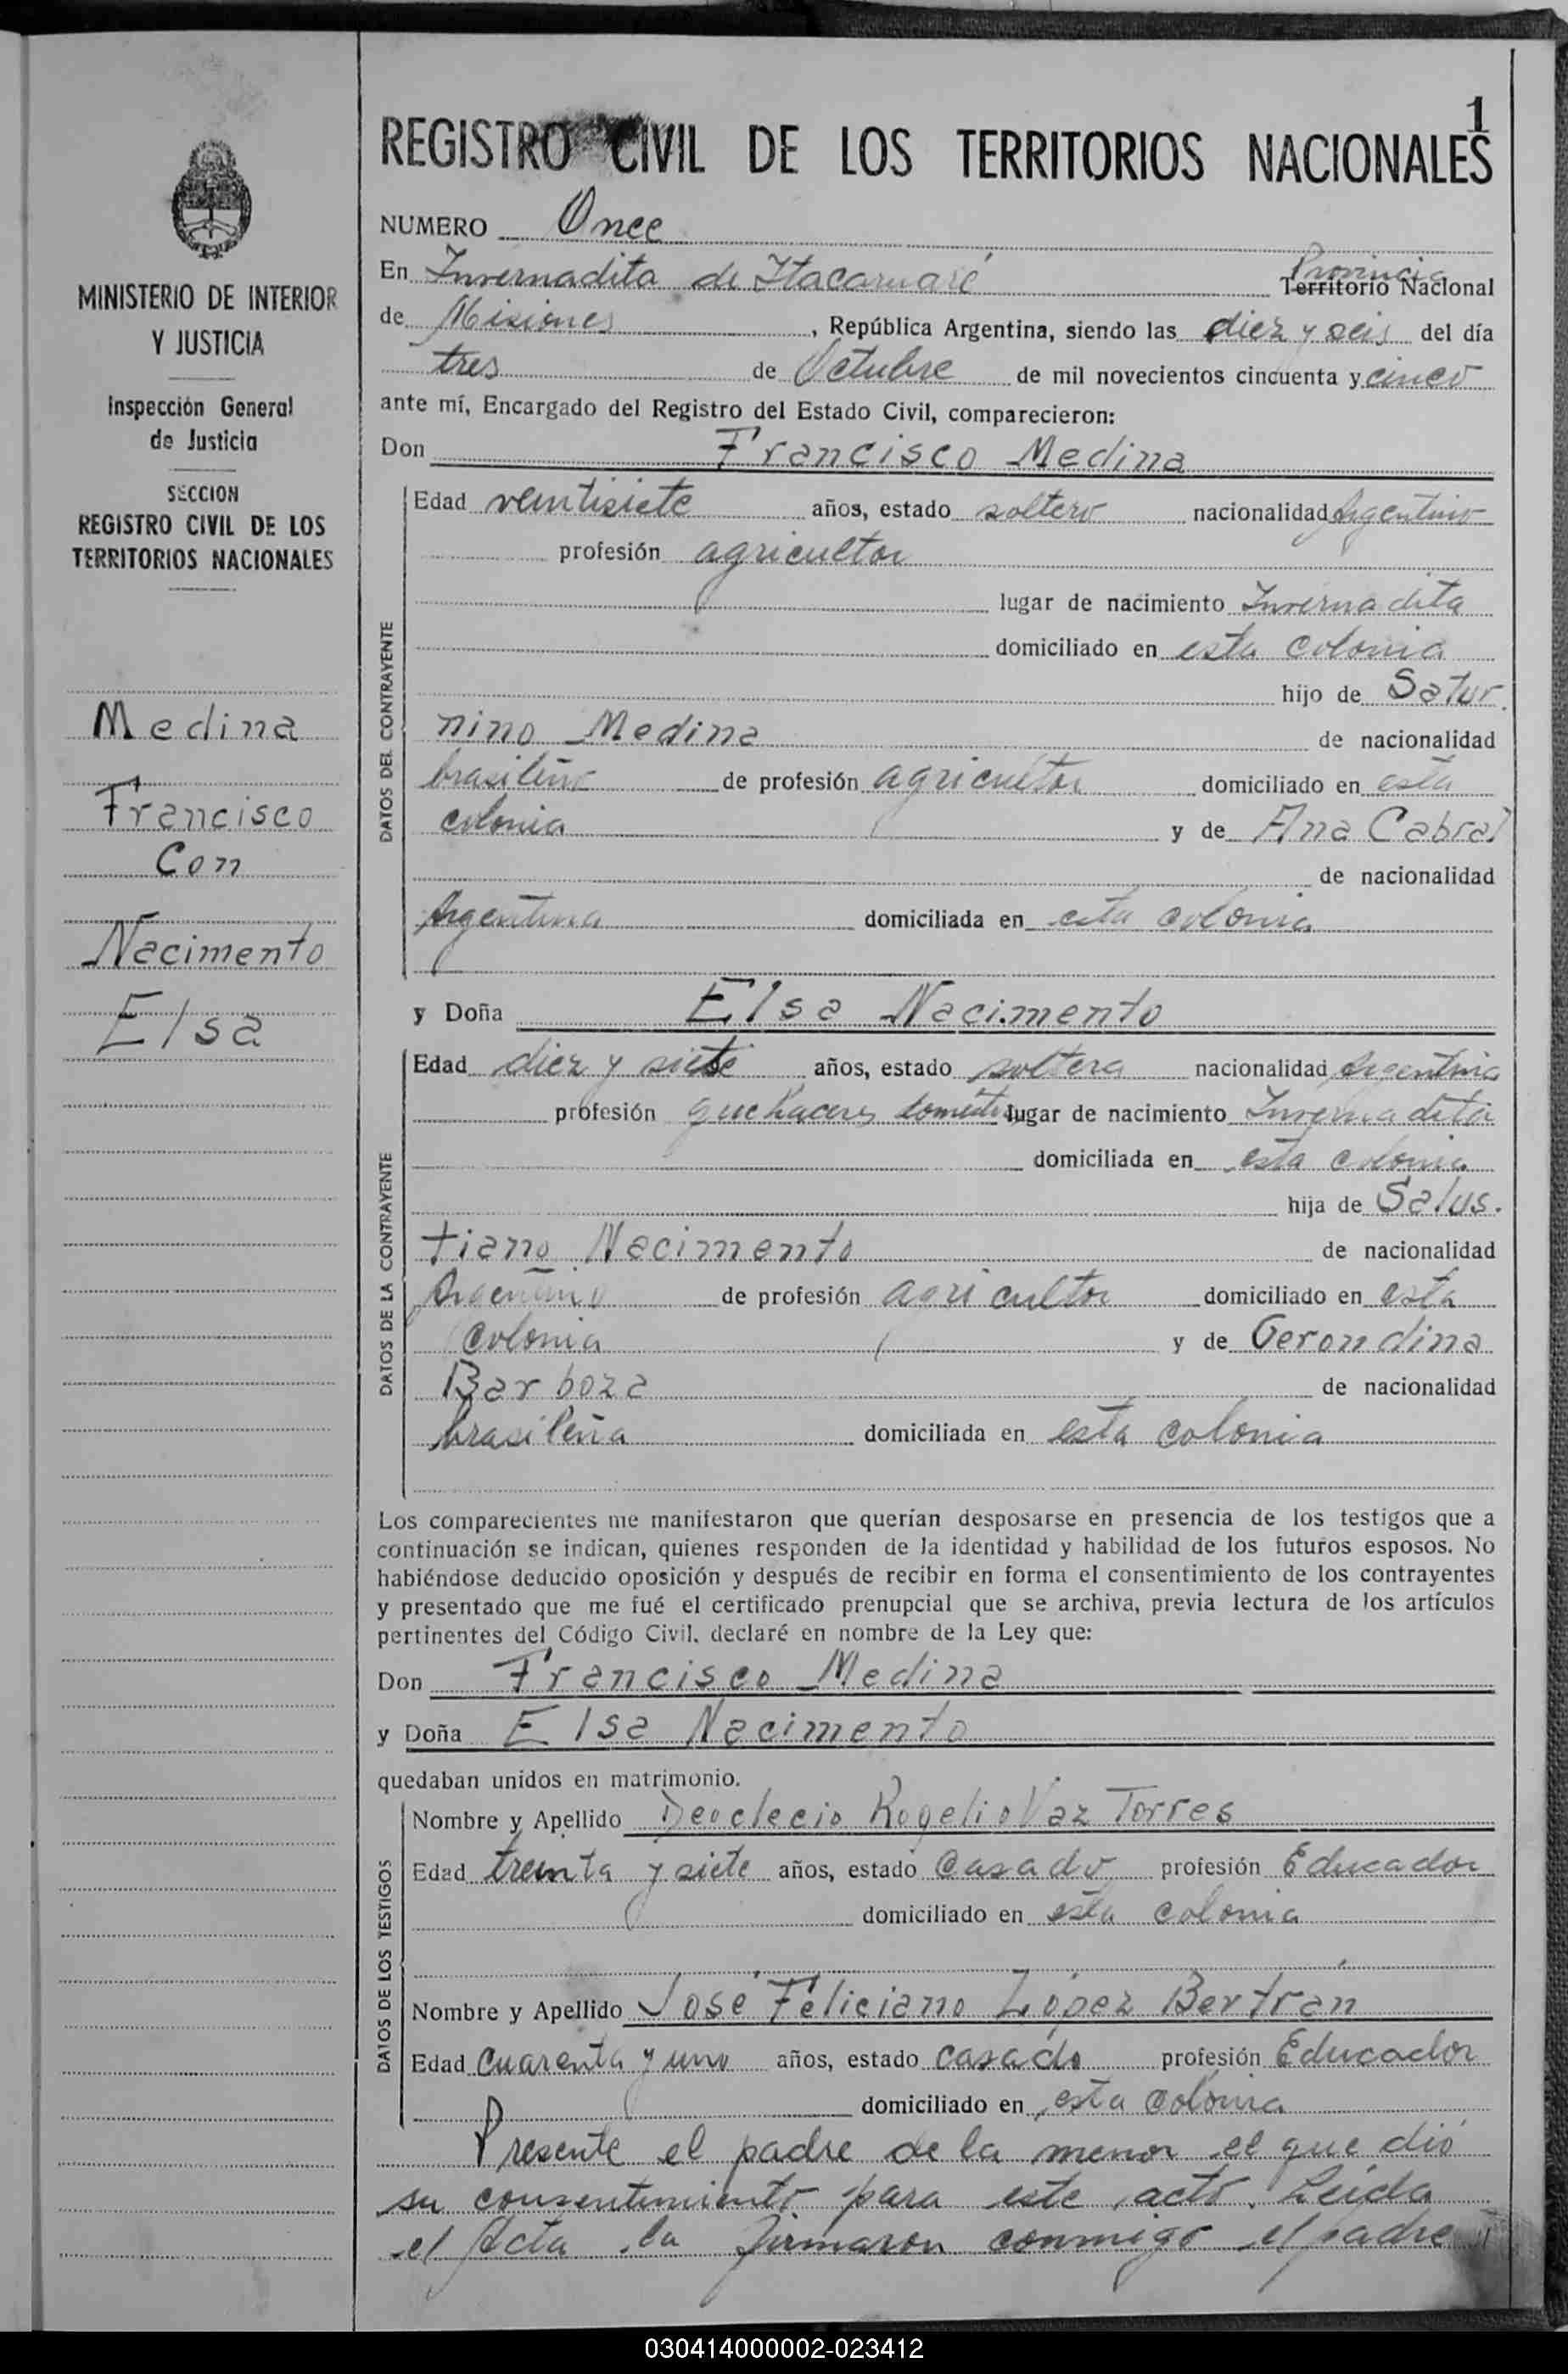 1
REGISTRO CIVIL DE LOS TERRITORIOS NACIONALES
MINISTERIO DE INTERIOR
Y JUSTICIA
Inspección General
de Justicia
SECCION
REGISTRO CIVIL DE LOS
TERRITORIOS NACIONALES
Medina
Francisco
Con
Nacimento
Elsa
NUMERO Once
En Invernadita de Itacaruaré Provincia Territorio Nacional
de Misiones, República Argentina, siendo las diez y seis del día
tres de Octubre de mil novecientos cincuenta y cinco
ante mí, Encargado del Registro del Estado Civil, comparecieron:
Don Francisco Medina
DATOS DEL CONTRAYENTE
Edad veintisiete años, estado soltero nacionalidad Argentino
profesión agricultor
lugar de nacimiento Invernadita
domiciliado en esta colonia
hijo de Satur.
nino Medina de nacionalidad
brasileño de profesión agricultor domiciliado en esta
colonia y de Ana Cabral
de nacionalidad
Argentina domiciliada en esta colonia
y Doña Elsa Nacimento
DATOS DE LA CONTRAYENTE
Edad diez y siete años, estado soltera nacionalidad Argentina
profesión quehaceres lugar de nacimiento Invernadita
domiciliada en esta colonia
hija de Salus.
tiano Nacimento de nacionalidad
Argentino de profesión agricultor domiciliado en esta
colonia y de Gerondina
Barboza de nacionalidad
brasileña domiciliada en esta colonia
Los comparecientes me manifestaron que querían desposarse en presencia de los testigos que a
continuación se indican, quienes responden de la identidad y habilidad de los futuros esposos. No
habiéndose deducido oposición y después de recibir en forma el consentimiento de los contrayentes
y presentado que me fué el certificado prenupcial que se archiva, previa lectura de los artículos
pertinentes del Código Civil, declaré en nombre de la Ley que:
Don Francisco Medina
y Doña Elsa Nacimento
quedaban unidos en matrimonio.
DATOS DE LOS TESTIGOS
Nombre y Apellido Deoclecio Rogelio Vaz Torres
Edad treinta y siete años, estado Casado profesión Educador
domiciliado en esta colonia
Nombre y Apellido José Feliciano López Bertrán
Edad cuarenta y uno años, estado casado profesión Educador
domiciliado en esta colonia
Presente el padre de la menor el que dió
su consentimiento para este acto. Leida
el Acta la firmaron conmigo el padre
030414000002-023412